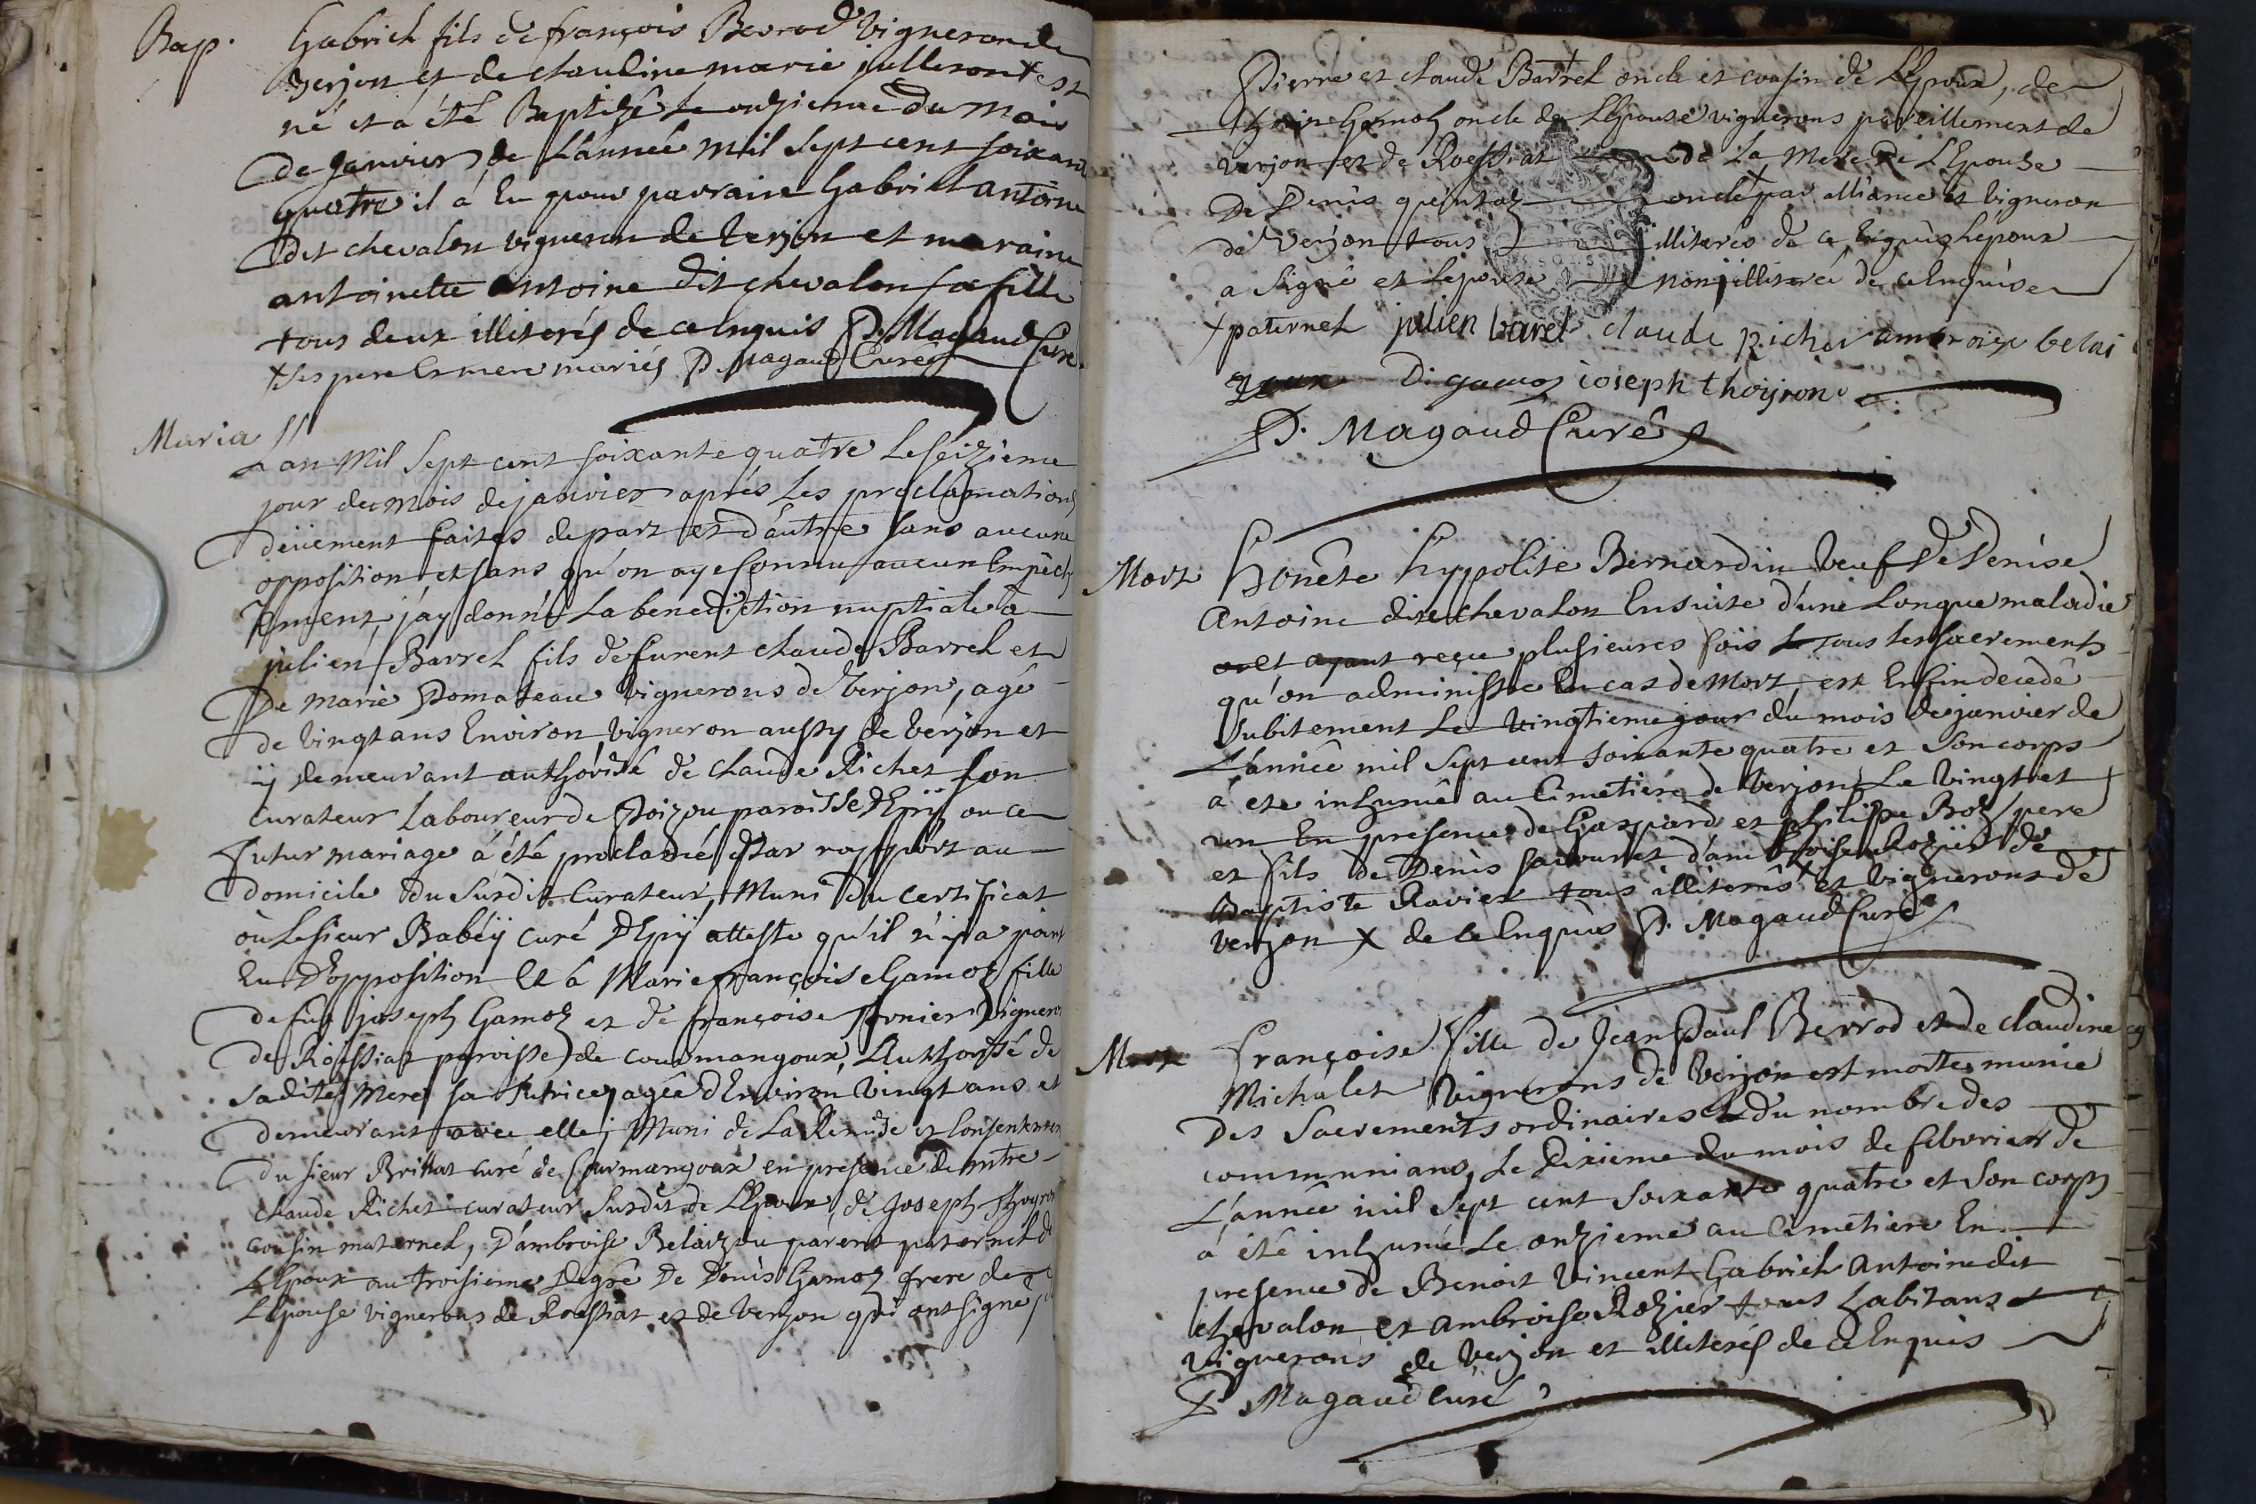 Bap.
Gabriel fils de françois Berrod vigneron de
verjon et de claudine marie julleron + est
né et a été Baptizé le onzieme du mois
de janvier de L'année mil sept cent soixante
quatre il a Eu pour parraine Gabriel antoine
dit chevalon vigneron de verjon et maraine
antoinette antoine dit chevalon sa fille
tous deux illiterés de ce Enquis P. Magaud Curé
+ ses pere Et mere mariés P. Magaud Curé
Maria
L'an Mil sept cent soixante quatre Le seizieme
jour du mois de janvier aprés Les proclamations
deüement faites de part et d'autre sans aucune
opposition et sans qu'on aye Connu aucun Empêch
ement, j'ay donné La benediction nuptiale à
julien Barrel fils de furent claude Barrel et
De marie Domateau vignerons de verjon, agé
de vingt ans Environ, vigneron aussy de verjon et
ij demeurant authorisé de claude Richet son
Curateur Laboureur de Poizou paroisse d'Epij ou ce
futur mariage à été proclamé Par rapport au
domicile du susdit Curateur, Muni du certificat
où Le sieur Babéij curé D'Epij atteste qu'il n'ij a point
Eu D'opposition Et à Marie françoise Gamoz fille
de fut joseph Gamoz et de françoise Prvnier vigneron
de Roissiat paroisse de courmangoux, Authorisé de
sadite Mere sa tutrice, agée d'Environ vingt ans et
demeurant avec elle, Muni de La Remise et Consentement
du sieur Brillat curé de Courmangoux en presence de mtre
claude Richet curateur susdit de L'Epoux, de joseph Thoyron
cousin maternel, D'ambroise Belaizou parent paternel de
L'Epoux au troisieme Degré De Denis Gamoz frere de
L'Epouse vignerons de Roissiat et de verjon qui ont signé
Pierre et claude Barrel oncle et cousin de L'Epoux, de
Gamoz oncle de L'Epouse vignerons pareillement de
verjon et de Roissiat de La Mere De L'Epouse
De Denis quintoz oncle + par alliance et vigneron
de verjon tous illiterés de ce Enquis L'epoux
a signé et L'epouse non illiterée de ce Enquise
+ paternel julien barel claude richer ambroise belai
zoux D. gamoz ioseph thoijron
P. Magaud Curé
Mort
Honête hyppolite Bernardin veuf De Denise
Antoine dite chevalon Ensuite d'une Longue maladie
et ayant reçu plusieures fois tous les sacrements
qu'on administre En cas de Mort, est Enfin decedé
subitement Le vingtieme jour du mois de janvier de
L'année mil sept cent soixante quatre et son corps
à eté inhumé au Cimetiére de verjon Le vingt et
un En presence de Gaspard et philippe Boz pere
et fils de Denis d'ambroise Rozier de
Baptiste Ravier tous illiterés + et vignerons de
verjon + de ce Enquis P. Magaud Curé
Mort
françoise fille de Jean Paul Berrod et de claudine
Michalet vignerons de verjon est morte munie
Des Sacrements ordinaires du nombre des
communians, Le dixieme du mois de febvrier de
L'année mil sept cent soixante quatre et son corps
à été inhumé Le onzieme au Cimetiere En
presence de Benoit vincent Gabriel antoine dit
chevalon et ambroise Rozier tous habitans
vignerons de verjon et illiterés de ce Enquis
P. Magaud Curé